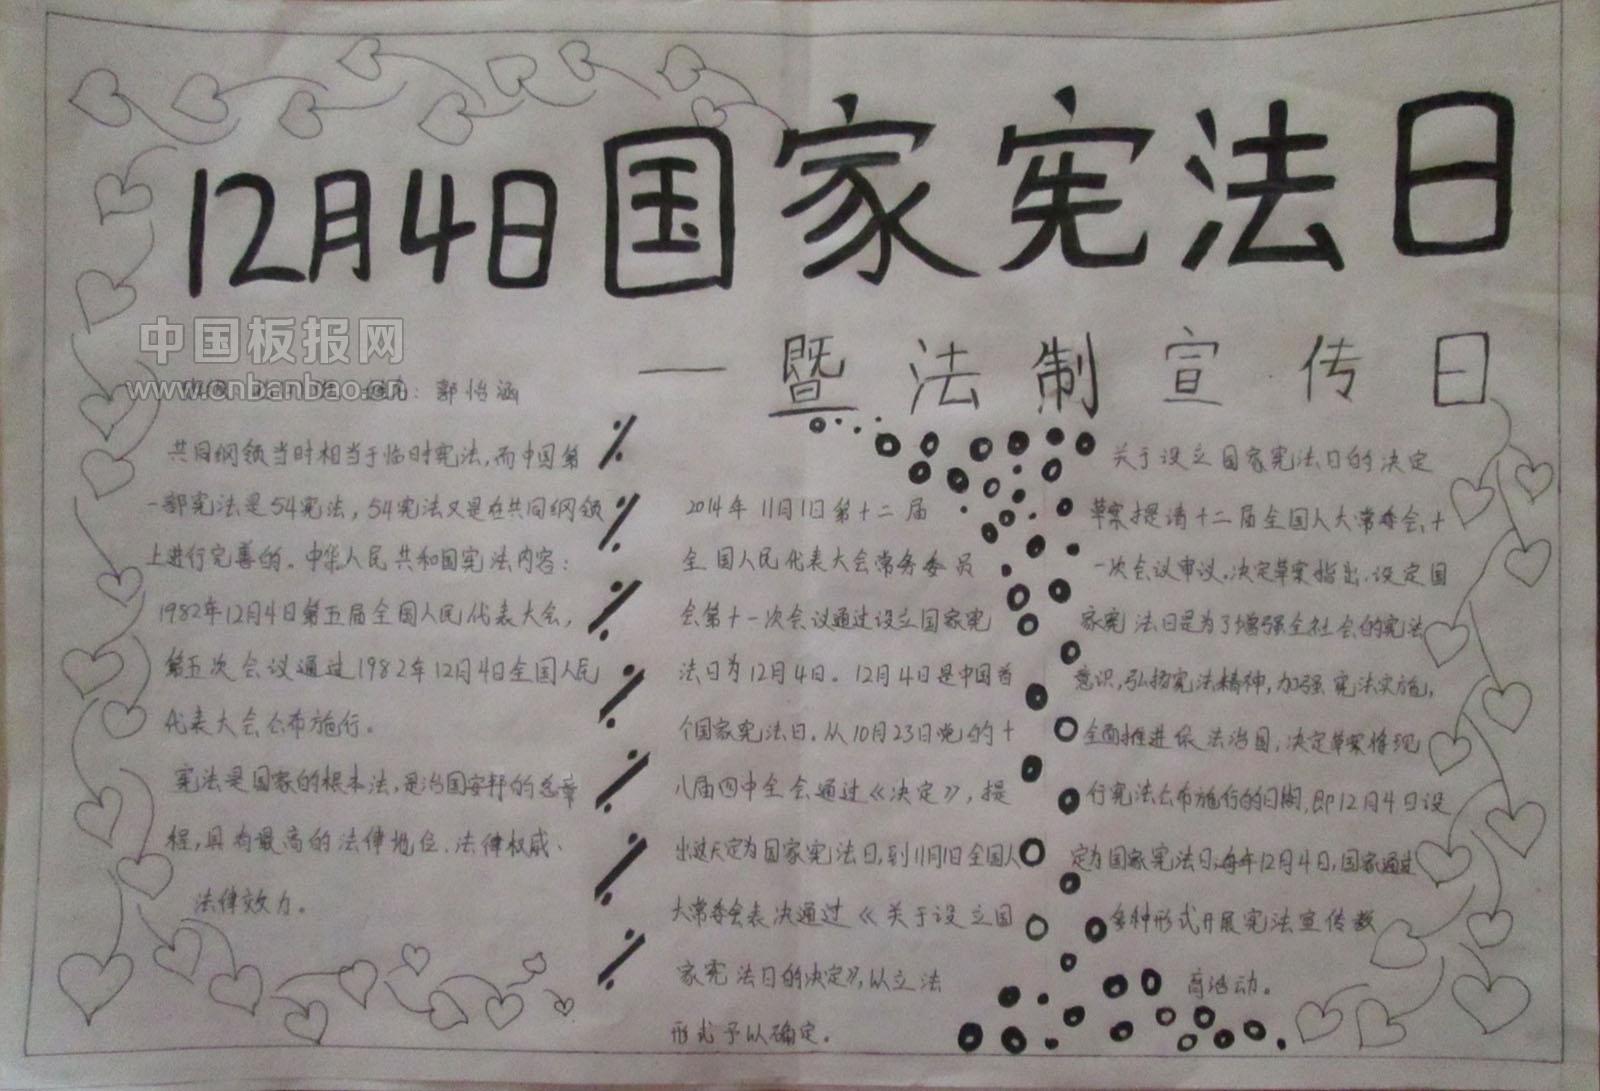 12月4日国家宪法日
一暨法制宣传日
中国板报网
www.cnbanbao.cn
郭怡涵
共同纲领当时相当于临时宪法,而中国第
一部宪法是54宪法,54宪法又是在共同纲领
上进行完善的。中华人民共和国宪法内容:
1982年12月4日第五届全国人民代表大会,
第五次会议通过1982年12月4日全国人民
代表大会公布施行。
宪法是国家的根本法,是治国安邦的总章
程,具有最高的法律地位、法律权威、
法律效力。
2014年11月1日第十二届
全国人民代表大会常务委员
会第十一次会议通过设立国家宪
法日为12月4日。12月4日是中国首
个国家宪法日。从10月23日党的十
八届四中全会通过《决定》,提
出这天定为国家宪法日,到11月1日全国人
大常委会表决通过《关于设立国
家宪法日的决定》,以立法
形式予以确定。
关于设立国家宪法日的决定
草案提请十二届全国人大常委会十
一次会议审议。决定草案指出,设定国
家宪法日是为了增强全社会的宪法
意识,弘扬宪法精神,加强宪法实施,
全面推进依法治国,决定草案将现
行宪法公布施行的日期,即12月4日设
定为国家宪法日;每年12月4日,国家通过
多种形式开展宪法宣传教
育活动。